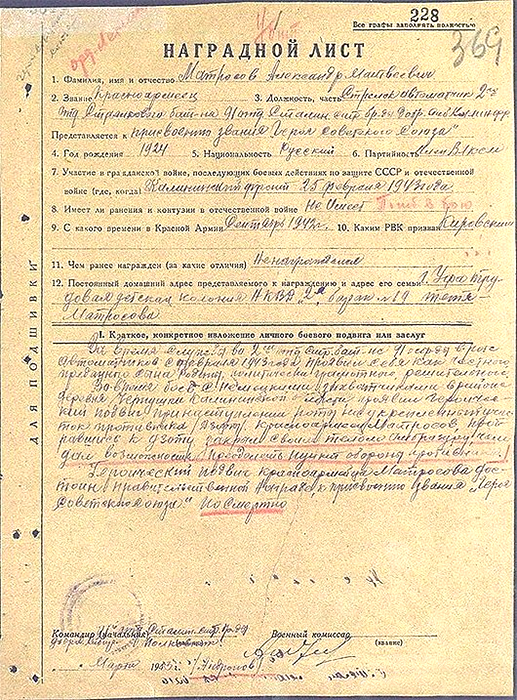 228
Все графы заполнять полностью
369
убит
НАГРАДНОЙ ЛИСТ
1. Фамилия, имя и отчество Матросов Александр Матвеевич
2. Звание Красноармеец 3. Должность, часть Стрелок автоматчик 2го
отд. Стрелкового бат-на 91 отд. Сталин. стр. бр-ды
Представляется к присвоению звания "Героя Советского Союза"
4. Год рождения 1924 5. Национальность Русский 6. Партийность член ВЛКСМ
7. Участие в гражданской войне, последующих боевых действиях по защите СССР и отечественной
войне (где, когда) Калининский фронт 25 февраля 1943 года
8. Имеет ли ранения и контузии в отечественной войне не имеет Погиб в бою
9. С какого времени в Красной Армии Сентябрь 1942 г. 10. Каким РВК призван Кировским
11. Чем ранее награжден (за какие отличия) Ненагражден
12. Постоянный домашний адрес представляемого к награждению и адрес его семьи г. Уфа тру-
довая детская колония НКВД 2 барак № 19 тетя
Матросова
ДЛЯ ПОДШИВКИ
I. Краткое, конкретное изложение личного боевого подвига или заслуг
За время службы во 2ом отд. стр. бат-не 91 отд. бр.
автоматчиком с февраля 1943 года проявил себя как честного
преданного сына Родины, политически грамотного, решительного
Во время боя с немецкими захватчиками в районе
деревня Чернушки Калининской области проявил героичес-
кий подвиг при наступлении роты на укрепленный учас-
ток противника (Дзот). Красноармеец Матросов, проб-
равшись к дзоту закрыл своим телом амбразуру, чем
дал возможность преодолеть пункт обороны противника.
Героический подвиг красноармейца Матросова дос-
тоин правительственной награды к присвоению звания "Героя
Советского Союза" Посмертно
Командир (начальник) 91 отд. Сталин. стр. бр-ды Военный комиссар
Полковник (звание)
Марта 1953 г. Андронов